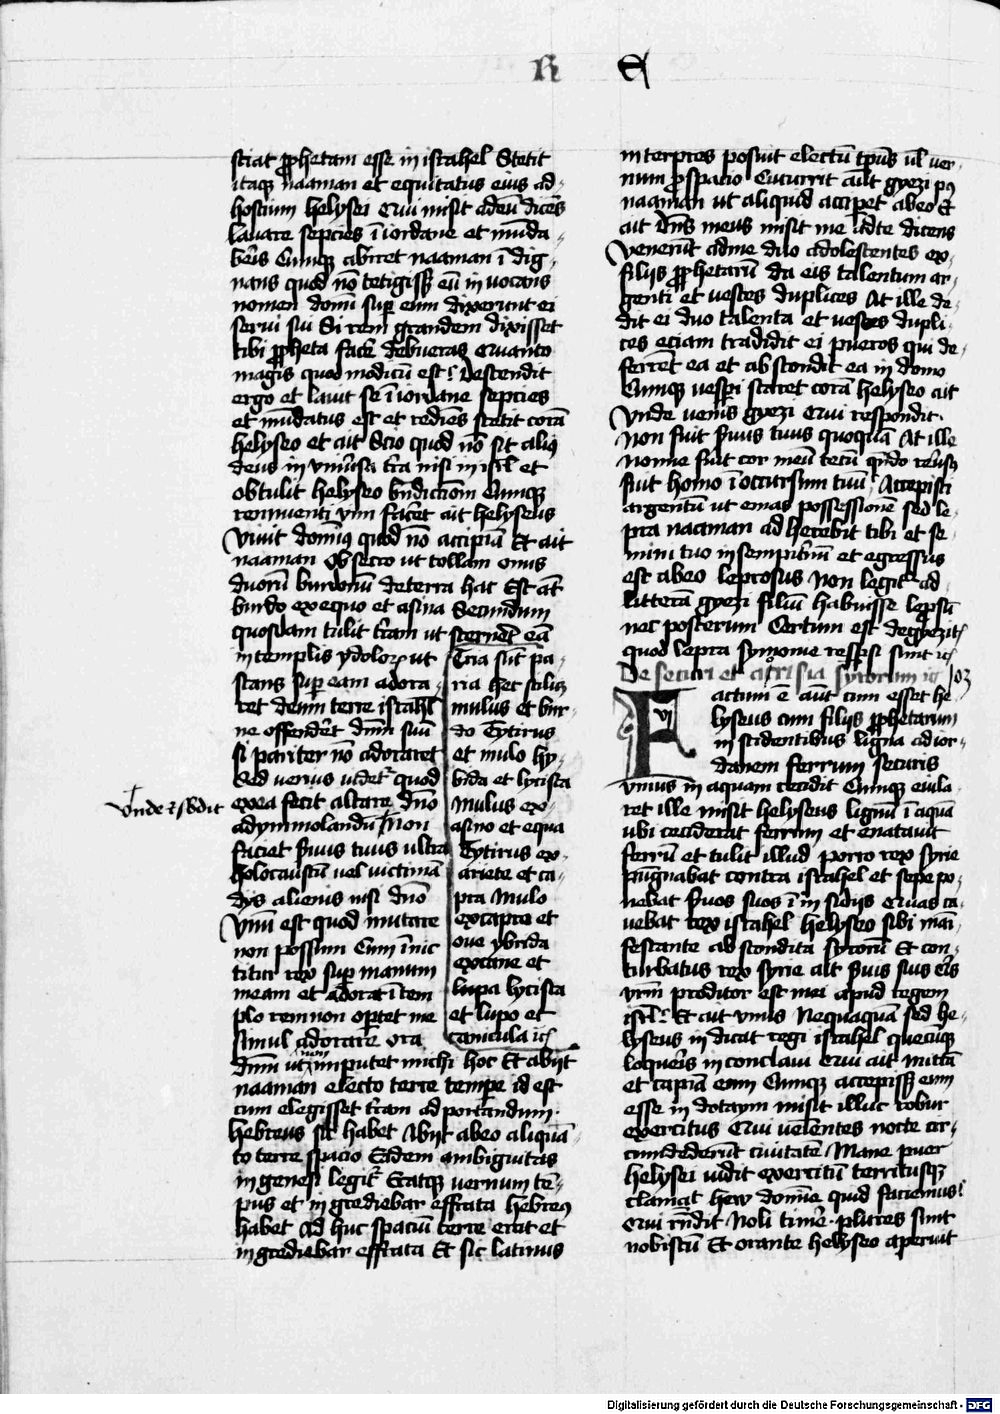 R E
sciat prophetam esse in israhel Stetit
itaque naaman et equitatus eius ad-
hostium helysei Qui misit ad eum dicens
Lauare sepcies in iordane et munda-
beris Cumque abiret naaman indig-
nans quod non tetigisset eum inuocans
nomen domini super eum dixerunt ei
serui sui Si rem grandem dixisset
tibi propheta facere debueras Quanto
magis quod modicum est Descendit
ergo et lauit se in iordane sepcies
et mundatus est et rediens stetit coram
helyseo et ait Scio quod non sit alius
deus in uniuersa terra nisi in israel et
obtulit helyseo benedictionem Cumque
renuenti vim faceret ait helyseus
Viuit dominus quod non accipiam Et ait
naaman Obsecro ut tollam onus
duorum burdonum de terra hac Est autem
burdo ex equo et asina Secundum
quosdam tulit terram ut sterneret eam
in templis ydolorum ut
stans super eam adora-
ret deum terre israhel
ne offenderet deum suum
si pariter non adoraret
Sed uerius uidetur quod
ex ea fecit altare domino
ad ymmolandum Non
faciet seruus tuus ultra
holocaustum uel uictimam
dys alienis nisi domino
Vnum est quod mutare
non possum Cum innic
titur rex super manum
meam et adorat in tem
plo remnon oportet me
simul adorare ora
Tria sunt pa-
ria hec scilicet
mulus et bur-
do Tytirus
et mulo hy-
brida et lycista
Mulus ex
asino et equa
Tytirus ex-
ariete et ca-
pra Mulo
ex capro et
oue ybrida
ex cane et
lupa lycista
et lupo et
canicula etc
Vnde et subdit
dominum ut non imputet michi hoc Et abiit
naaman electo terre tempe id est
cum elegisset terram ad portandum
hebreus sic habet Abiit ab eo aliquan-
to terre spacio Eadem ambiguitas
in genesi legitur Eratque uernum tem-
pus et ingrediebar effrata hebreus
habet Ad huc spacium terre erat et
ingrediebar effrata Et sic latinus
interpres posuit electum tempus uel ver-
num pro spacio Cucurrit autem gyezi post
naaman ut aliquid acciperet ab eo Et
ait dominus meus misit me ad te dicens
Venerunt ad me duo adolescentes ex-
filijs prophetarum da eis talentum ar-
genti et uestes duplices At ille de-
dit ei duo talenta et uestes dupli-
ces eciam tradidit ei pueros qui de-
ferrent ea et abscondit ea in domo
Cumque uesperi staret coram helyseo ait
Vnde uenis gyezi Qui respondit
Non fuit seruus tuus quoquam At ille
Nonne fuit cor meum tecum quando reuersus
fuit homo in occursum tuum Accepisti
argentum ut emas possessionem sed le-
pra naaman ad herebit tibi et se-
mini tuo in sempiternum et egressus
est ab eo leprosus Non legit ad
litteram gyezi filium habuisse leprosum
nec posterum Certum est de gyezitis
quod lepra symonie respersi sunt etc
De securi et acrisia syrorum
Factum est autem cum esset he
lyseus cum filijs prophetarum
in scidentibus ligna ad ior-
danem ferrum securis
vnius in aquam cecidit Cumque eiula-
ret ille misit helyseus lignum in aquam
ubi ceciderat ferrum et enatauit
ferrum et tulit illud porro rex syrie
pugnabat contra israhel et sepe po-
nebat seruos suos in insidijs Quas ca-
uebat rex israhel helyseo sibi mani-
festante abscondita syrorum Et con-
turbatus rex syrie ait seruis suis Quis
vestrum proditor est mei apud regem
israel Et ait vnus Nequaquam sed he-
lyseus indicat regi israhel quecumque
loqueris in conclaui Qui ait Mittam
et capiam eum Cumque accepisset eum
esse in dotaym misit illuc robur
exercitus Qui uenientes nocte cir-
cumdederunt ciuitatem Mane puer
helysei uidit exercitum territusque
clamat hew domine quid faciemus
Qui respondit Noli timere plures sunt
nobiscum Et orante helyseo aperuit
Digitalisierung gefördert durch die Deutsche Forschungsgemeinschaft - DFG